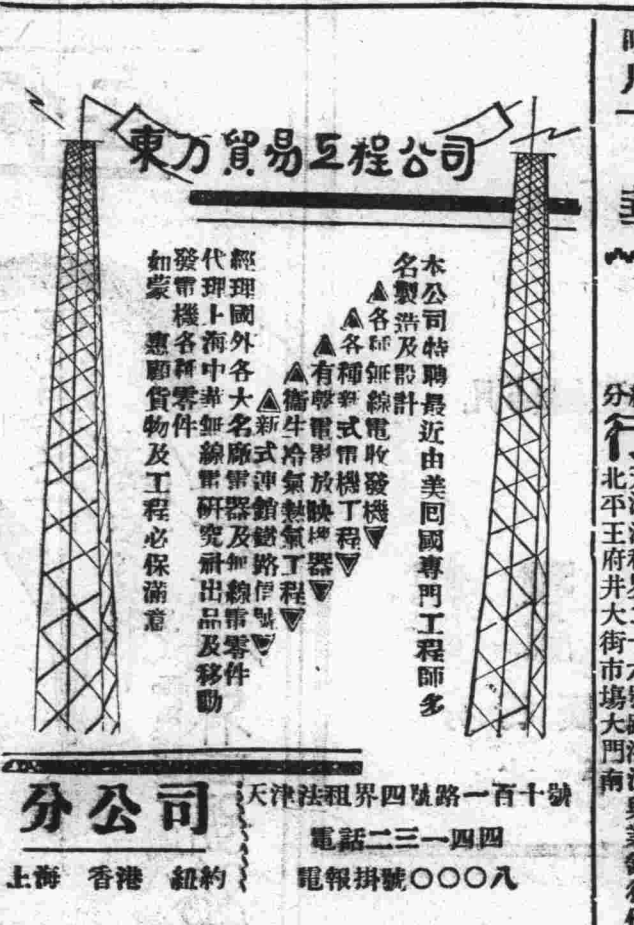 東方貿易工程公司
本公司特聘最近由美囘國專門工程師多
名製造及設計
▲各種無線電收發機▼
▲各種新式電機工程▼
▲有聲電影放映機器▼
▲衛生冷氣熱氣工程▼
▲新式連鎖鐵路信號▼
經理國外各大名廠電器及無線電零件
代理上海中華無線電研究社出品及移動
發電機各種零件
如蒙　惠顧貨物及工程必保滿意
天津法租界四號路一百十號
電話二三一四四
電報掛號〇〇〇八
分公司
上海　香港　紐約
北平王府井大街市場大門南